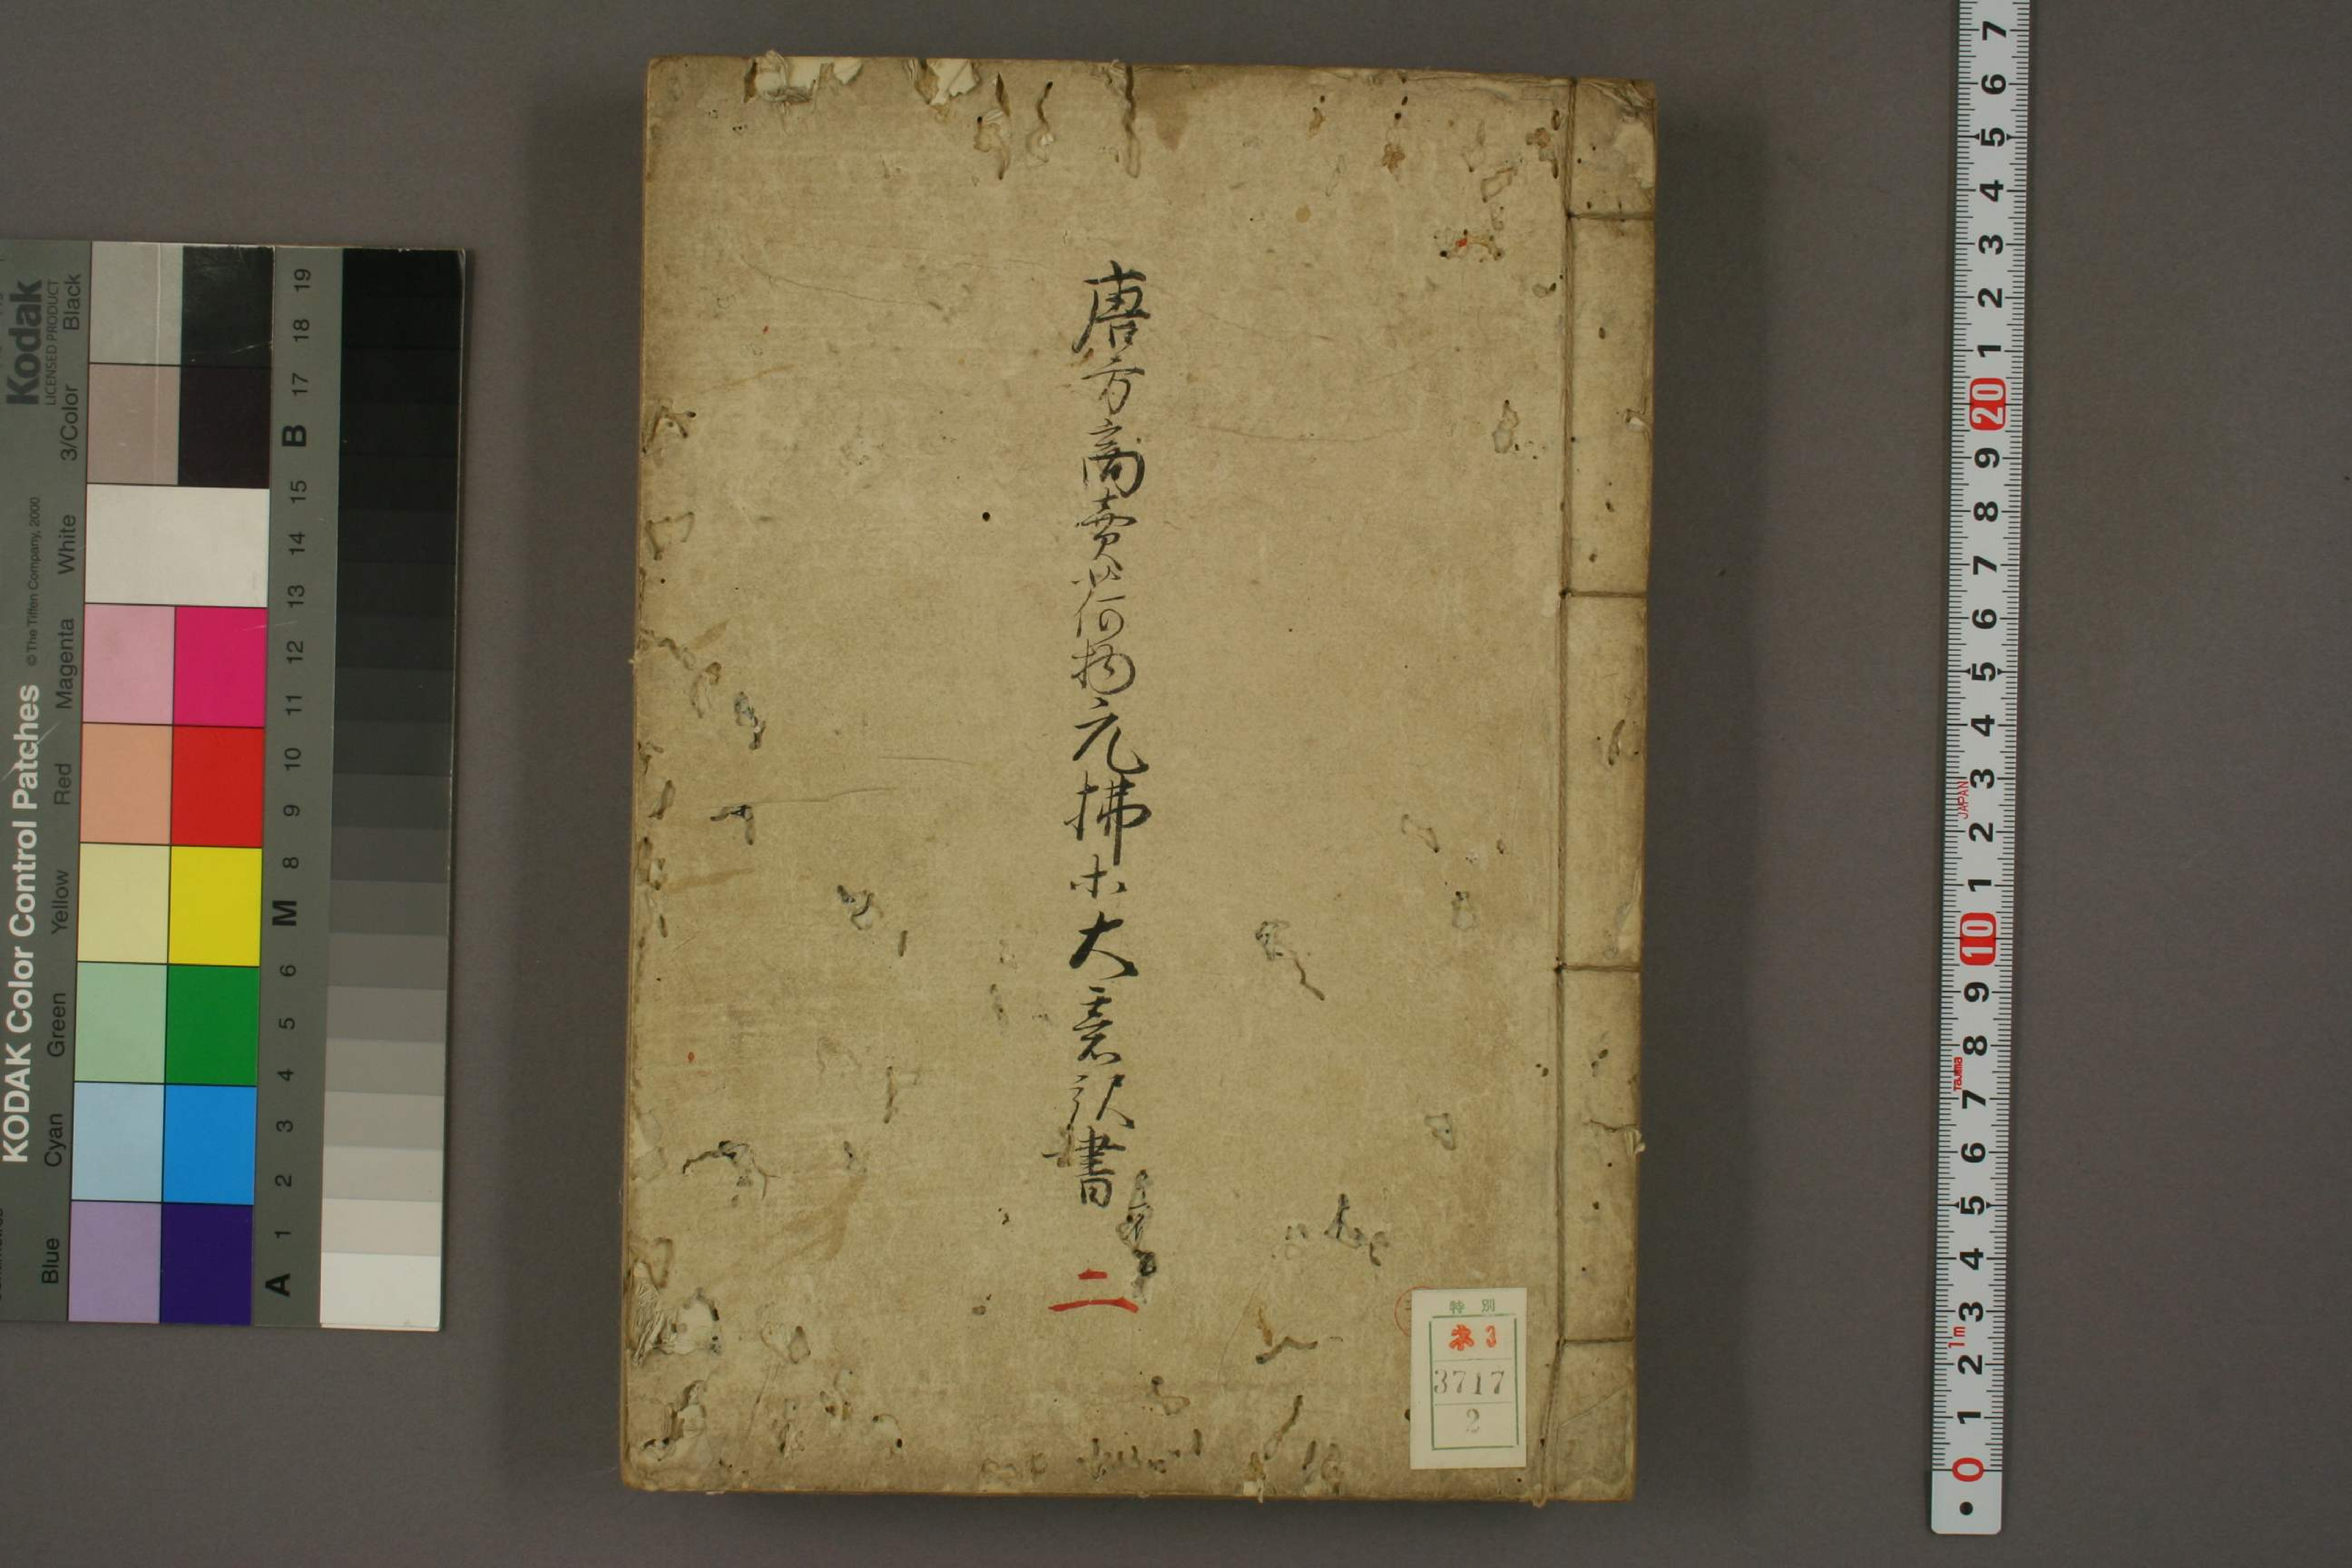 唐方商賣荷物元拂
大意訳書
二
特別
ネ3
3717
2
Kodak
LICENSED PRODUCT
KODAK Color Control Patches
© The Tiffen Company, 2000
Blue
Cyan
Green
Yellow
Red
Magenta
White
3/Color
Black
A 1 2 3 4 5 6 M 8 9 10 11 12 13 14 15 B 17 18 19
0 1 2 3 4 5 6 7 8 9 10 1 2 3 4 5 6 7 8 9 20 1 2 3 4 5 6 7
1m
Tajima
JAPAN